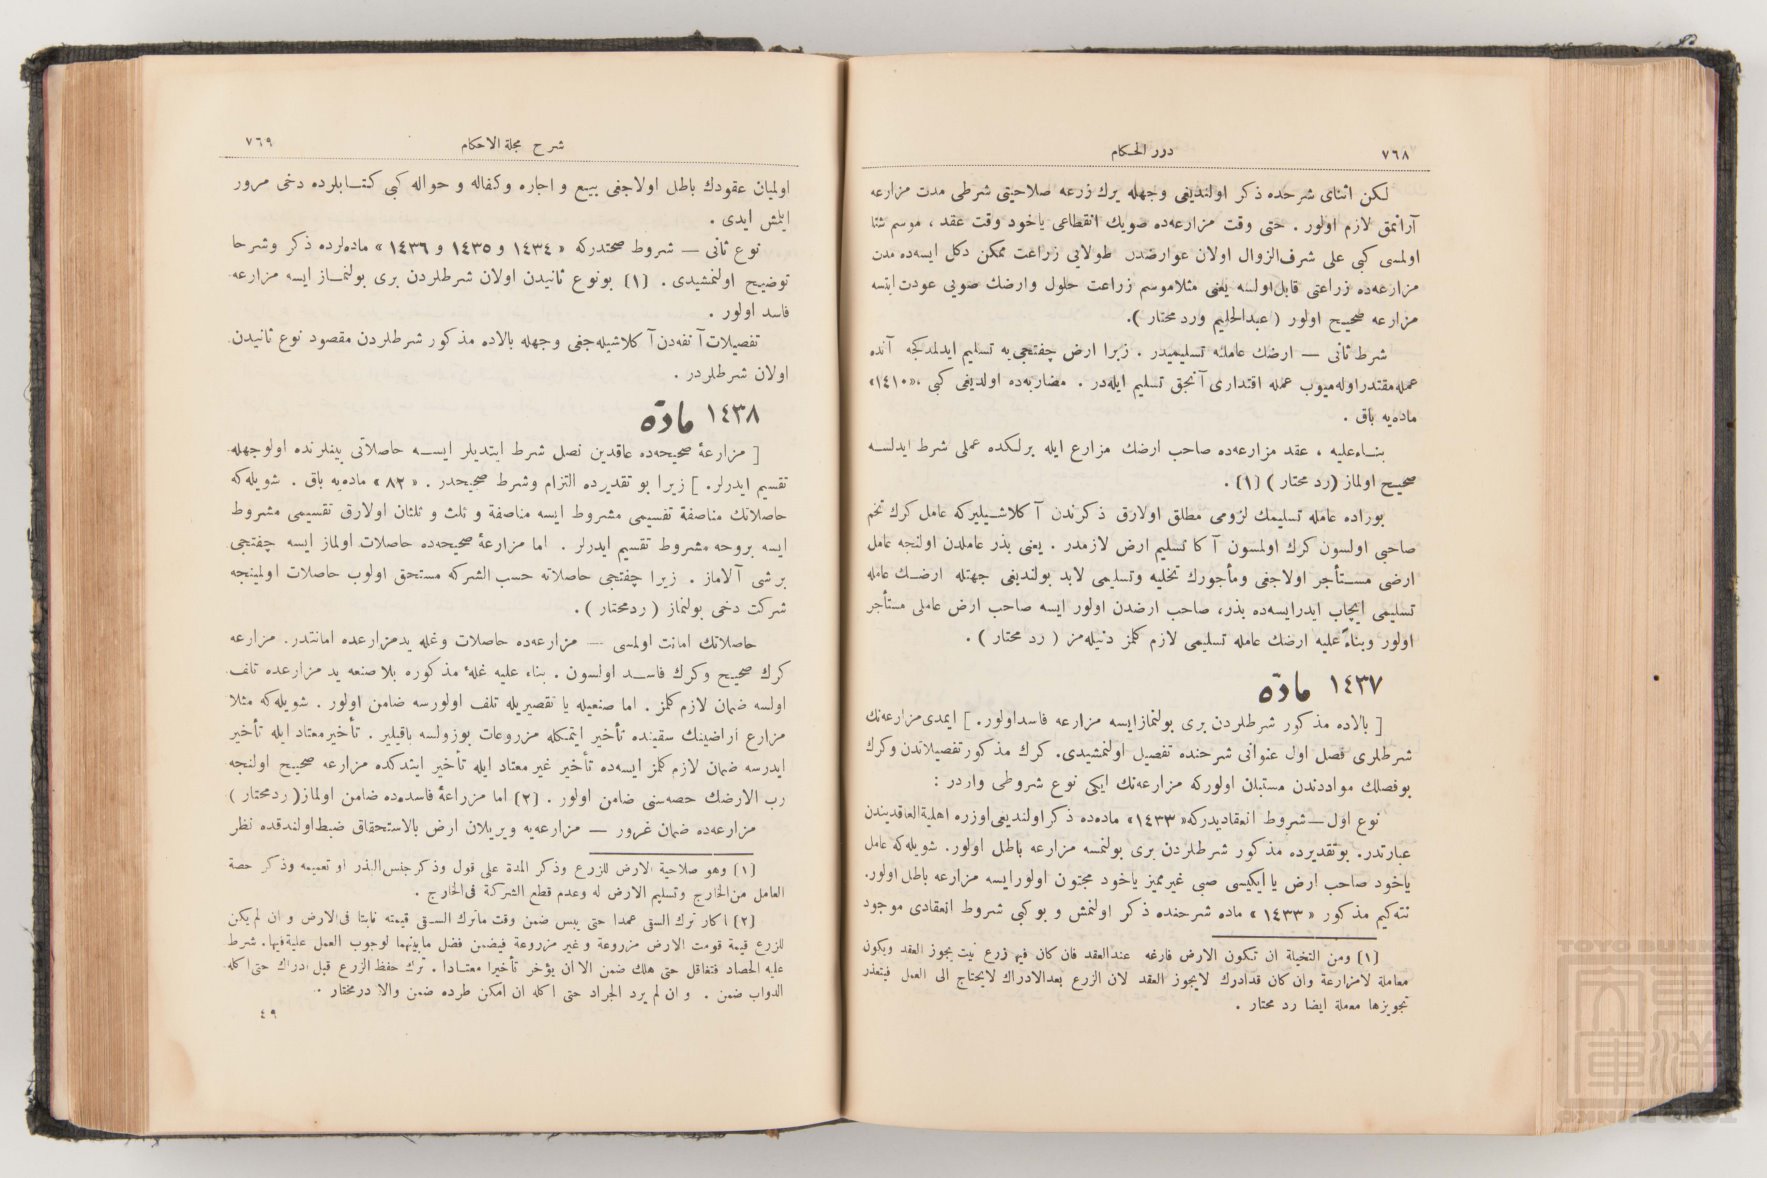 ٧٦٨
درر الحكام
لكن اثنای شرحده ذكر اولندیغی وجهله یرك زرعه صلاحیتی شرطی مدت مزارعه
آرانمق لازم اولور . حتی وقت مزارعه‌ده صویك انقطاعی یاخود وقت عقد ، موسم شتا
اولمسی كبی علی شرف‌الزوال اولان عوارضدن طولایی زراعت ممكن دكل ایسه‌ده مدت
مزارعه‌ده زراعتی قابل اولسه یعنی مثلا موسم زراعت حلول وارضك صویی عودت ایتسه
مزارعه صحیح اولور ( عبدالحلیم ورد محتار ).
شرط ثانی — ارضك عامله تسلیمیدر . زیرا ارض چفتجی‌یه تسلیم ایدلمدكجه آنده
عمله مقتدر اوله‌میوب عمله اقتداری آنجق تسلیم ایله‌در . مضاربه‌ده اولدیغی كبی «١٤١٠»
ماده‌یه باق .
بنـاء علیه ، عقد مزارعه‌ده صاحب ارضك مزارع ایله برلكده عملی شرط ایدلسـه
صحیح اولماز (رد محتار ) (١) .
بوراده عامله تسلیمك لزومی مطلق اولارق ذكرندن آكلاشـیلیركه عامل كرك تخم
صاحبی اولسون كرك اولمسون آكا تسلیم ارض لازمدر . یعنی بذر عاملدن اولنجه عامل
ارضی مسـتأجر اولاجغی ومأجورك تخلیه وتسلیمی لابد بولندیغی جهتله ارضـك عامله
تسلیمی ایجاب ایدرایسه‌ده بذر، صاحب ارضدن اولور ایسه صاحب ارض عاملی مستأجر
اولور وبناءً علیه ارضك عامله تسلیمی لازم كلمز دنیله‌مز ( رد محتار ) .
١٤٣٧ مادّه
[ بالاده مذكور شرطلردن بری بولنمازایسه مزارعه فاسداولور. ] ایمدی مزارعه‌نك
شرطلری فصل اول عنوانی شرحنده تفصیل اولنمشیدی. كرك مذكور تفصیلاتدن وكرك
بوفصلك موادندن مستبان اولوركه مزارعه‌نك ایكی نوع شروطی واردر :
نوع اول — شروط انعقادیدركه «١٤٣٣» ماده‌ده ذكر اولندیغی اوزره اهلیة العاقدیندن
عبارتدر. بوتقدیرده مذكور شرطلردن بری بولنمسه مزارعه باطل اولور. شویله‌كه عامل
یاخود صاحب ارض یا ایكیسی صبی غیرممیز یاخود مجنون اولورایسه مزارعه باطل اولور.
نته‌كیم مذكور «١٤٣٣» ماده شرحنده ذكر اولنمش و بوكبی شروط انعقادی موجود
(١) ومن التخیلة ان تكون الارض فارغه عندالعقد فان كان فیها زرع نبت یجوز العقد ویكون
معاملة لامزارعة وان كان قدادرك لایجوز العقد لان الزرع بعدالادراك لایحتاج الی العمل فیتعذر
تجویزها معملة ایضا رد محتار .
شرح مجلة الاحكام
٧٦٩
اولمیان عقودك باطل اولاجغی بیـع و اجاره وكفاله و حواله كبی كتـابلرده دخی مرور
ایلش ایدی .
نوع ثانی — شروط صحتدركه « ١٤٣٤ و ١٤٣٥ و ١٤٣٦ » ماده‌لرده ذكر وشرحا
توضیح اولنمشیدی . (١) بونوع ثانیدن اولان شرطلردن بری بولنمـاز ایسه مزارعه
فاسد اولور .
تفصیلات آنفه‌دن آكلاشیله‌جغی وجهله بالاده مذكور شرطلردن مقصود نوع ثانیدن
اولان شرطلردر .
١٤٣٨ مادّه
[ مزارعهٔ صحیحه‌ده عاقدین نصل شرط ایتدیلر ایسـه حاصلاتی بینلرنده اولوجهله
تقسیم ایدرلر. ] زیرا بو تقدیرده التزام وشرط صحیحدر . « ٨٢ » ماده‌یه باق . شویله‌كه
حاصلاتك مناصفة تقسیمی مشروط ایسه مناصفة و ثلث و ثلثان اولارق تقسیمی مشروط
ایسه بروجه مشروط تقسیم ایدرلر . اما مزارعهٔ صحیحه‌ده حاصلات اولماز ایسه چفتجی
برشی آلاماز . زیرا چفتجی حاصلاته حسب الشركه مستحق اولوب حاصلات اولمینجه
شركت دخی بولنماز ( ردمحتار ) .
حاصلاتك امانت اولمسی — مزارعه‌ده حاصلات وغله یدمزارعده امانتدر. مزارعه
كرك صحیح وكرك فاسـد اولسون . بناء علیه غلهٔ مذكوره بلا صنعه ید مزارعده تلف
اولسه ضمان لازم كلمز . اما صنعیله یا تقصیریله تلف اولورسه ضامن اولور . شویله‌كه مثلا
مزارع اراضینك سقینده تأخیر ایتمكله مزروعات بوزولسه باقیلیر . تأخیرمعتاد ایله تأخیر
ایدرسه ضمان لازم كلمز ایسه‌ده تأخیر غیر معتاد ایله تأخیر ایتدكده مزارعه صحیح اولنجه
رب الارضك حصه‌سنی ضامن اولور . (٢) اما مزراعهٔ فاسده‌ده ضامن اولماز( ردمحتار )
مزارعه‌ده ضمان غرور — مزارعه‌یه ویریلان ارض بالاستحقاق ضبط اولندقده نظر
(١) وهو صلاحیة الارض للزرع وذكر المدة علی قول وذكر جنس‌البذر او تعمیمه وذكر حصة
العامل من‌الخارج وتسلیم الارض له وعدم قطع الشركة فی‌الخارج .
(٢) اكار ترك السقی عمدا حتی یبس ضمن وقت ماترك السـقی قیمته نابتا فی‌الارض و ان لم یكن
للزرع قیمة قومت الارض مزروعة و غیر مزروعة فیضمن فضل مابینهما لوجوب العمل علیه فیها. شرط
علیه الحصاد فتغافل حتی هلك ضمن الا ان یؤخر تأخیرا معتـادا . ترك حفظ الزرع قبل ادراك حتی اكله
الدواب ضمن . و ان لم یرد الجراد حتی اكله ان امكن طرده ضمن والا درمختار .
٤٩
TOYO BUNKO
東洋文庫